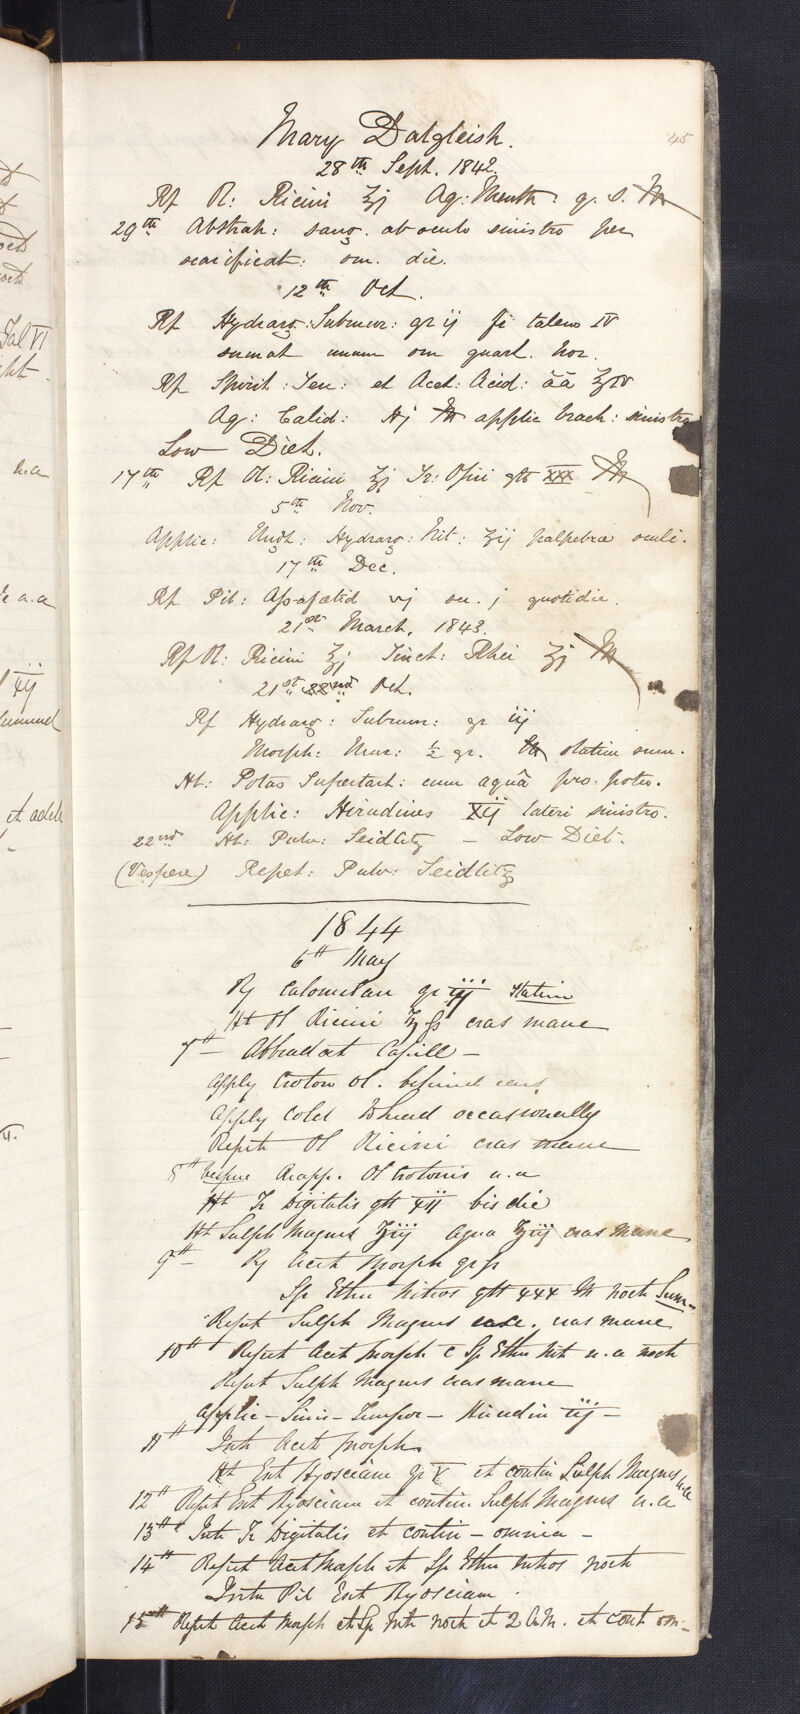 45
Mary Dalgleish.
28th Sept. 1842
Rf Ol: Ricini ʒj Aq: Menth: q. s. M
29th Abstrah: sang. ab oculo sinistro per
scarificat: om. die.
12th Oct.
Rf Hydrarg: Submur: gr ij ft tales IV
sumat unum om quart. hor.
Rf Spirit: Ten: et Acet: Acid: āā ℥IV
Aq: Calid: ℔j M applic brach: sinistro
Low Diet.
17th Rf Ol: Ricini ℥j Tr: Opii gtt XXX M
5th Nov.
Applic: Ungt: Hydrarg: Nit: ʒij palpebræ oculi.
17th Dec.
Rf Pil: Assafætid vj su. j quotidie.
21st March. 1843.
Rf Ol: Ricini ℥j Tinct: Rhei ℥j M
21st 22nd Oct.
Rf Hydrarg: Submur: gr iij
Morph: Mur: ½ gr. M statim sum.
Ht: Potas Supertart: cum aquâ pro. potu.
Applic: Hirudines XIj lateri sinistro.
22nd Ht: Pulv: Seidlitz – Low Diet.
(Vespere) Repet: Pulv: Seidlitz
1844
6th May
Rf Calomelan gr iij statim
Ht Ol Ricini ℥ß cras mane
7th – Abbradat Capill –
Apply Croton ol. behind ears
Apply cold to head occasionally
Repet Ol Ricini cras mane
8th vespere Reapp. Ol Crotonis u.a
Ht Tr Digitalis gtt bis die
Ht Sulph Magnes ʒiij aqua ℥iij cras mane
9th – Rf Acet Morph gr ß
Sp Ether Nitros gtt xxx M noct Sum–
Repet Sulph Magnes cras mane
10th Repet Acet Morph c Sp Ether Nit u.a noct
Repet Sulph Magnes cras mane
Applic – Sinis – Tempor – Hirudin iij –
11th Intr Acet Morph.
Ht Ext Hyosciam gr V et contin Sulph Magnes u.a
12th Repet Ext Hyosciam et contin Sulph Magnes u.a
13th Intr Tr Digitalis et contin – omnia –
14th Repet Acet Morph et Sp Ether Nitros noct
Intr Pil Ext Hyosciam.
15th Repet Acet Morph et Sp Nitr noct et 2 A.M. et cont om–